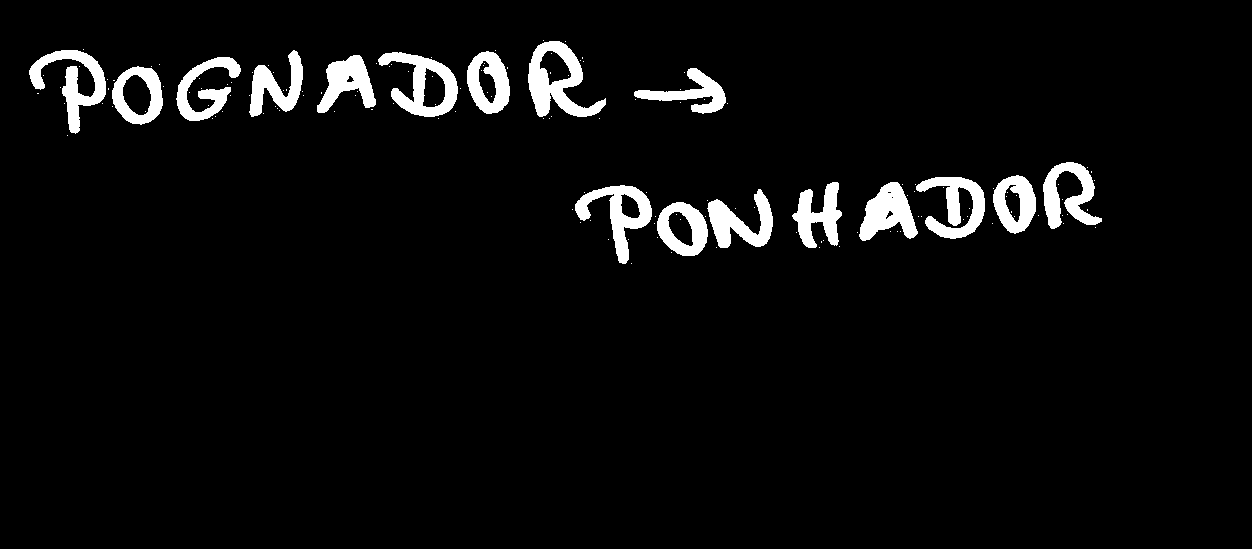 POGNADOR →
PONHADOR